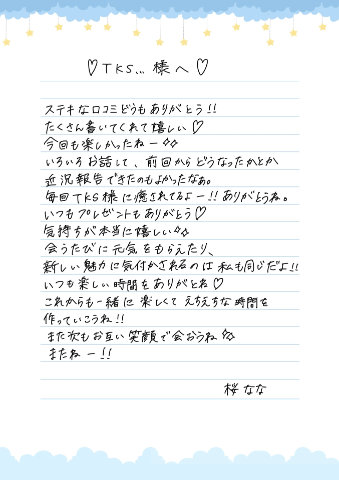 ♡TKS... 様へ♡
ステキな口コミどうもありがとう!!
たくさん書いてくれて嬉しい♡
今回も楽しかったねー✨
いろいろお話して、前回からどうなったかとか
近況報告できたのもよかったなぁ。
毎回TKS様に癒されてるよー!!ありがとうね。
いつもプレゼントもありがとう♡
気持ちが本当に嬉しい✨
会うたびに元気をもらえたり、
新しい魅力に気付かされるのは私も同じだよ!!
いつも楽しい時間をありがとね♡
これからも一緒に楽しくてえちえちな時間を
作っていこうね!!
また次もお互い笑顔で会おうね✨
またねー!!
桜なな